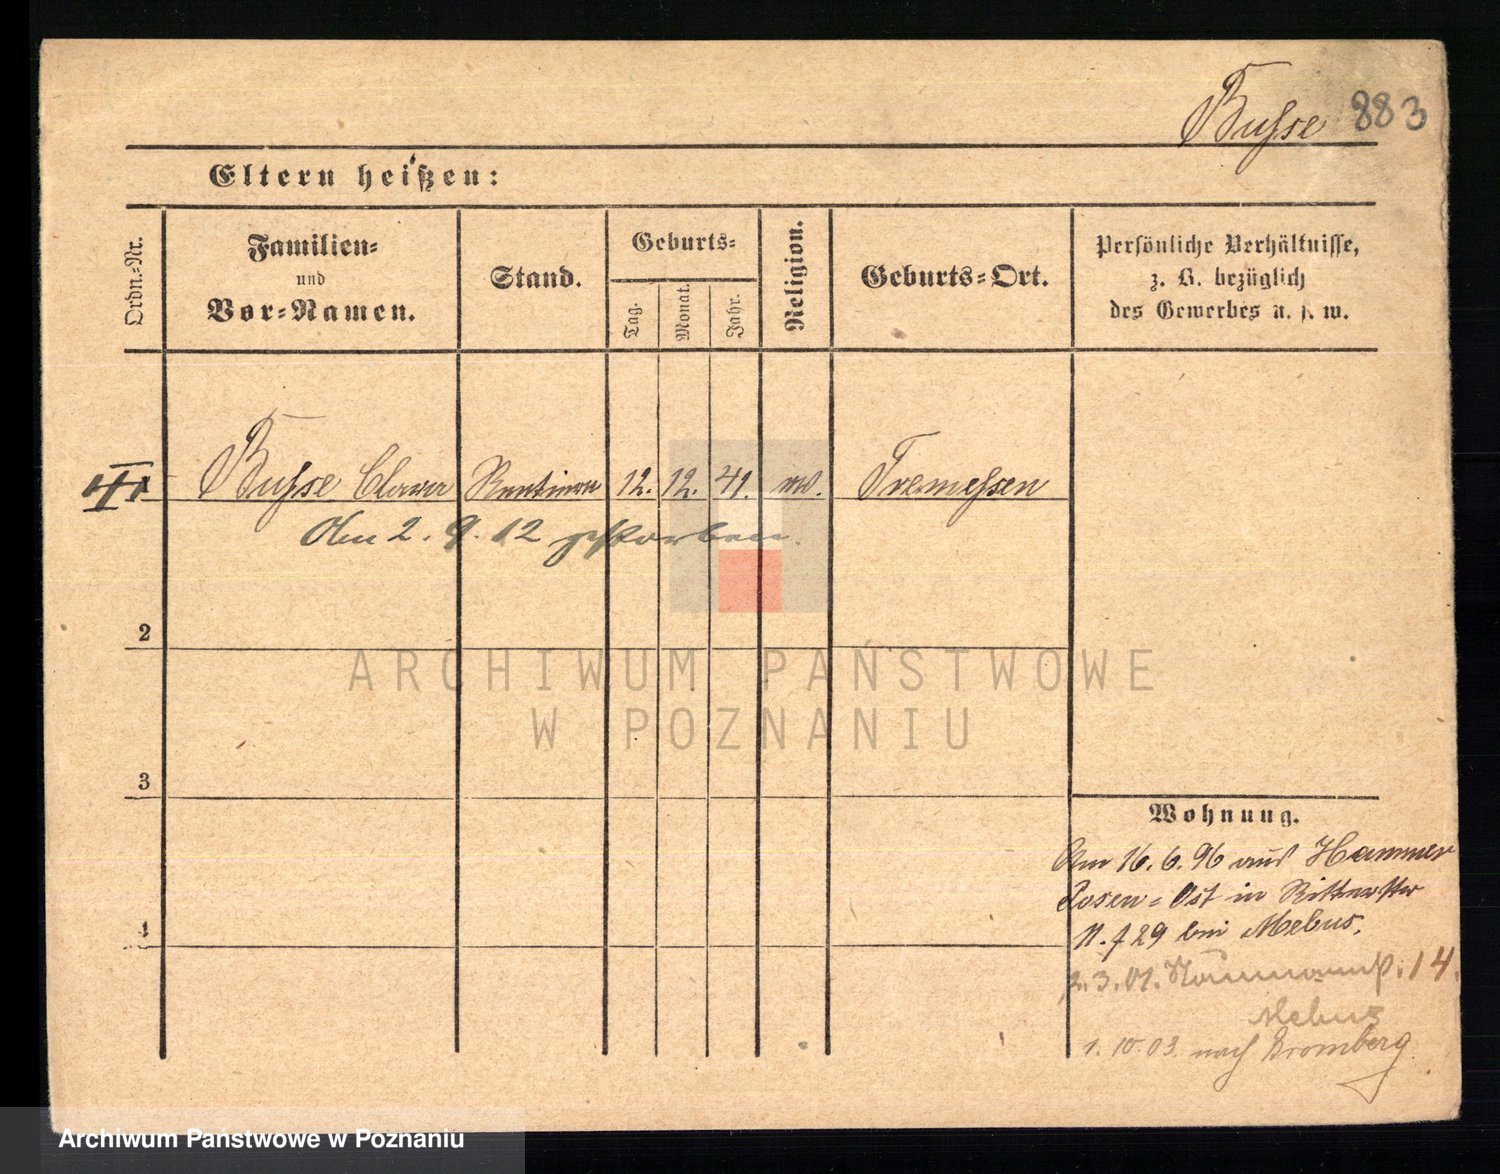 Busse 883
Eltern heißen:
Ordn.-Nr.
Familien-
und
Vor-Namen.
Stand.
Geburts-
Tag.
Monat.
Jahr.
Religion.
Geburts-Ort.
Persönliche Verhältnisse,
z. B. bezüglich
des Gewerbes u. s. w.
Busse Clara Rentiere 12. 12. 41. Tremessen
Am 2. 9. 12 gestorben.
2
ARCHIWUM PAŃSTWOWE
W POZNANIU
3
Wohnung.
Am 16.6.96 aus Hammer
Posen-Ost in Ritterstr
29 bei Mebus.
2.3.01. Naumannst. 14.
Mebus
1.10.03. nach Bromberg
4
Archiwum Państwowe w Poznaniu